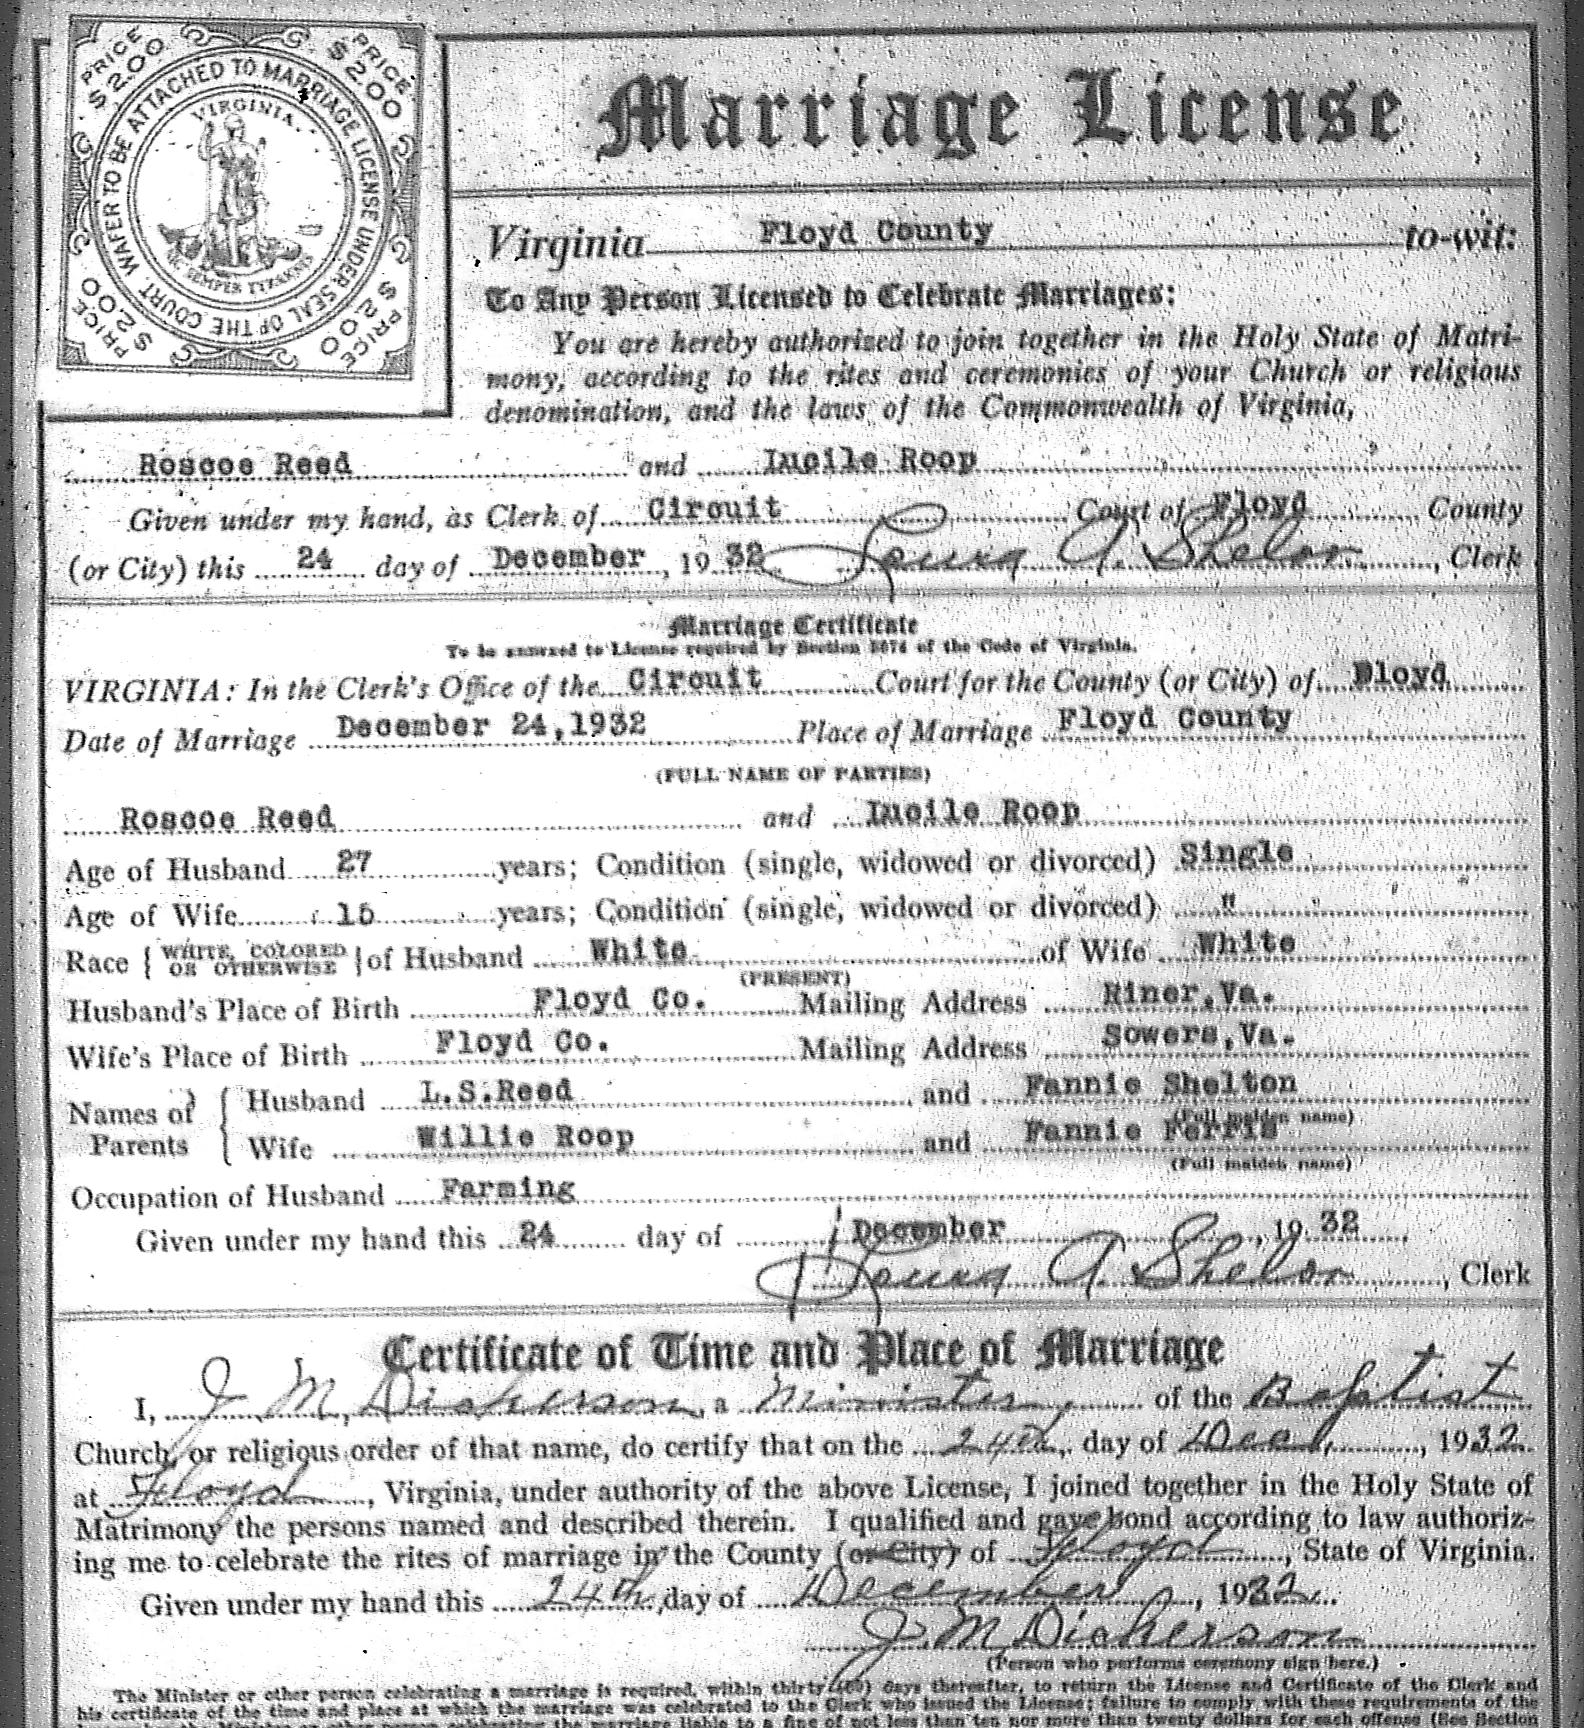 PRICE $2.00 PRICE $2.00
WAFER TO BE ATTACHED TO MARRIAGE LICENSE UNDER SEAL OF THE COURT.
VIRGINIA
SIC SEMPER TYRANNIS
PRICE $2.00 PRICE $2.00
Marriage License
Virginia Floyd County to-wit:
To Any Person Licensed to Celebrate Marriages:
You are hereby authorized to join together in the Holy State of Matri-
mony, according to the rites and ceremonies of your Church or religious
denomination, and the laws of the Commonwealth of Virginia,
Roscoe Reed and Lucile Roop
Given under my hand, as Clerk of Circuit Court of Floyd County
(or City) this 24 day of December, 1932 A. Shelor, Clerk
Marriage Certificate
To be annexed to License required by Section 5074 of the Code of Virginia.
VIRGINIA: In the Clerk's Office of the Circuit Court for the County (or City) of Floyd
Date of Marriage December 24,1932 Place of Marriage Floyd County
(FULL NAME OF PARTIES)
Roscoe Reed and Lucile Roop
Age of Husband 27 years; Condition (single, widowed or divorced) Single
Age of Wife 15 years; Condition (single, widowed or divorced) "
Race { WHITE, COLORED OR OTHERWISE } of Husband White of Wife White
(PRESENT)
Husband's Place of Birth Floyd Co. Mailing Address Riner,Va.
Wife's Place of Birth Floyd Co. Mailing Address Sowers,Va.
Names of Parents { Husband L.S.Reed and Fannie Shelton
(Full maiden name)
Wife Willie Roop and Fannie Ferris
(Full maiden name)
Occupation of Husband Farming
Given under my hand this 24 day of December, 1932
A. Shelor, Clerk
Certificate of Time and Place of Marriage
I, J M Dickerson, a Minister, of the Baptist
Church, or religious order of that name, do certify that on the 24th, day of Dec, 1932
at Floyd, Virginia, under authority of the above License, I joined together in the Holy State of
Matrimony the persons named and described therein. I qualified and gave bond according to law authoriz-
ing me to celebrate the rites of marriage in the County (or City) of Floyd, State of Virginia.
Given under my hand this 24th, day of December, 1932
J. M Dickerson
(Person who performs ceremony sign here.)
The Minister or other person celebrating a marriage is required, within thirty (30) days thereafter, to return the License and Certificate of the Clerk and
his certificate of the time and place at which the marriage was celebrated to the Clerk who issued the License; failure to comply with these requirements of the
the marriage liable to a fine of not less than ten nor more than twenty dollars for each offense (See Section